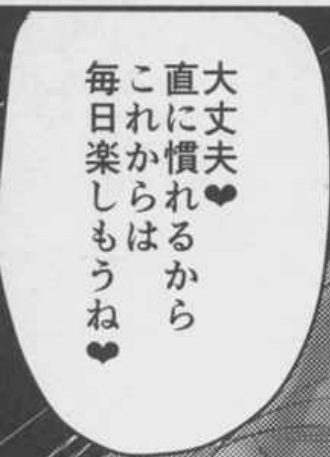 大丈夫♥
直に慣れるから
これからは
毎日楽しもうね♥